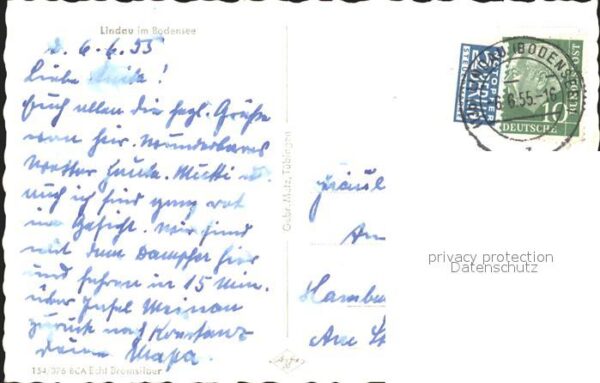 Lindau im Bodensee
d. 6.6.55
Liebe Anita!
Euch allen die herzl. Grüße
von hier. Wunderbares
Wetter heute. Mutti u.
auch ich sind ganz rot
im Gesicht. Wir sind
mit dem Dampfer hier
und fahren in 15 Min.
über Insel Meinau
zurück nach Konstanz
Deine Mama.
154/076 BCA Echt Bromsilber
Gebr. Metz, Tübingen
Agfa
NOTOPFER
STEUERMARKE
2 BERLIN
LINDAU (BODENSEE)
6.6.55.-16
10
DEUTSCHE
POST
Fräul
An
Hambu
Am
privacy protection
Datenschutz